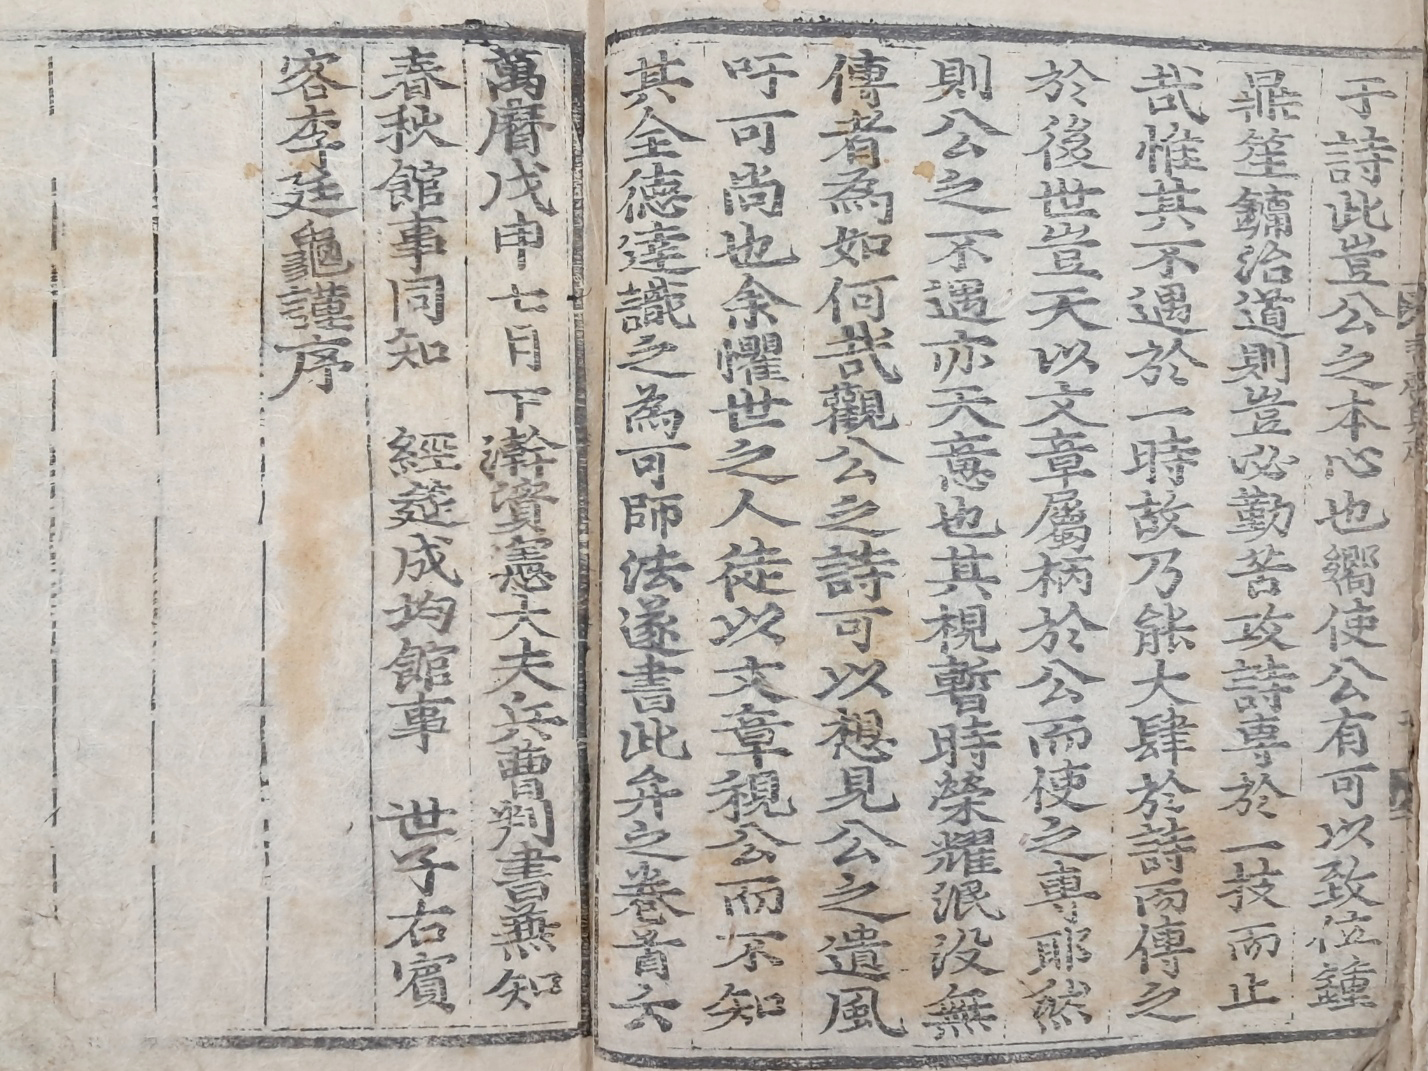 于詩此豈公之本心也嚮使公有可以致位鍾
鼎笙鏞治道則豈必勤苦攻詩專於一技而止
哉惟其不遇於一時故乃能大肆於詩而傳之
於後世豈天以文章屬柄於公而使之專耶然
則公之不遇亦天意也其視暫時榮耀泯沒無
傳者爲如何哉觀公之詩可以想見公之遺風
吁可尚也余懼世之人徒以文章視公而不知
其全德達識之爲可師法遂書此弁之卷首云
萬曆戊申七月下澣資憲大夫兵曹判書兼知
春秋館事同知 經筵成均館事 世子右賓
客李廷龜謹序